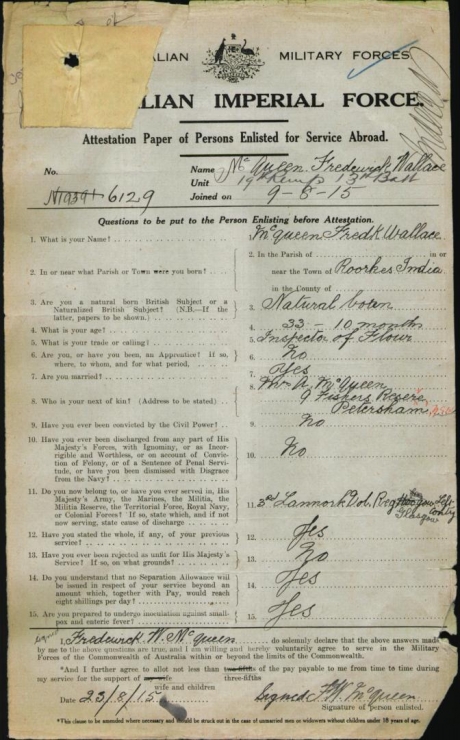 ALIAN MILITARY FORCES.
LIAN IMPERIAL FORCE.
Attestation Paper of Persons Enlisted for Service Abroad.
No. 6129
Name McQueen Frederick Wallace
Unit 13th Batt
Joined on 9-8-15
Questions to be put to the Person Enlisting before Attestation.
1. What is your Name? McQueen Fredk Wallace
2. In or near what Parish or Town were you born? 2. In the Parish of in or
near the Town of Roorkee India
in the County of
3. Are you a natural born British Subject or a
Naturalized British Subject? (N.B.—If the
latter, papers to be shown.) 3. Natural born
4. What is your age? 4. 33 - 10 months
5. What is your trade or calling? 5. Inspector of Flour
6. Are you, or have you been, an Apprentice? If so,
where, to whom, and for what period. 6. No
7. Are you married? 7. Yes
8. Who is your next of kin? (Address to be stated) 8. A. McQueen
9 Fishers
Petersham
9. Have you ever been convicted by the Civil Power? 9. No
10. Have you ever been discharged from any part of His
Majesty's Forces, with Ignominy, or as Incor-
rigible and Worthless, or on account of Conviction
of Felony, or of a Sentence of Penal Servi-
tude, or have you been dismissed with Disgrace
from the Navy? 10. No
11. Do you now belong to, or have you ever served in, His
Majesty's Army, the Marines, the Militia, the
Militia Reserve, the Territorial Force, Royal Navy,
or Colonial Forces? If so, state which, and if not
now serving, state cause of discharge 11. 3rd Lanark Vol. Glasgow
12. Have you stated the whole, if any, of your previous
service? 12. Yes
13. Have you ever been rejected as unfit for His Majesty's
Service? If so, on what grounds? 13. No
14. Do you understand that no Separation Allowance will
be issued in respect of your service beyond an
amount which, together with Pay, would reach
eight shillings per day? 14. Yes
15. Are you prepared to undergo inoculation against small-
pox and enteric fever? 15. Yes
I, Frederick W. McQueen do solemnly declare that the above answers made
by me to the above questions are true, and I am willing and hereby voluntarily agree to serve in the Military
Forces of the Commonwealth of Australia within or beyond the limits of the Commonwealth.
*And I further agree to allot not less than two-fifths of the pay payable to me from time to time during
my service for the support of my wife
wife and children three-fifths
Date 23/8/15 Signed F. W. McQueen
Signature of person enlisted.
*This clause to be amended where necessary and should be struck out in the case of unmarried men or widowers without children under 18 years of age.